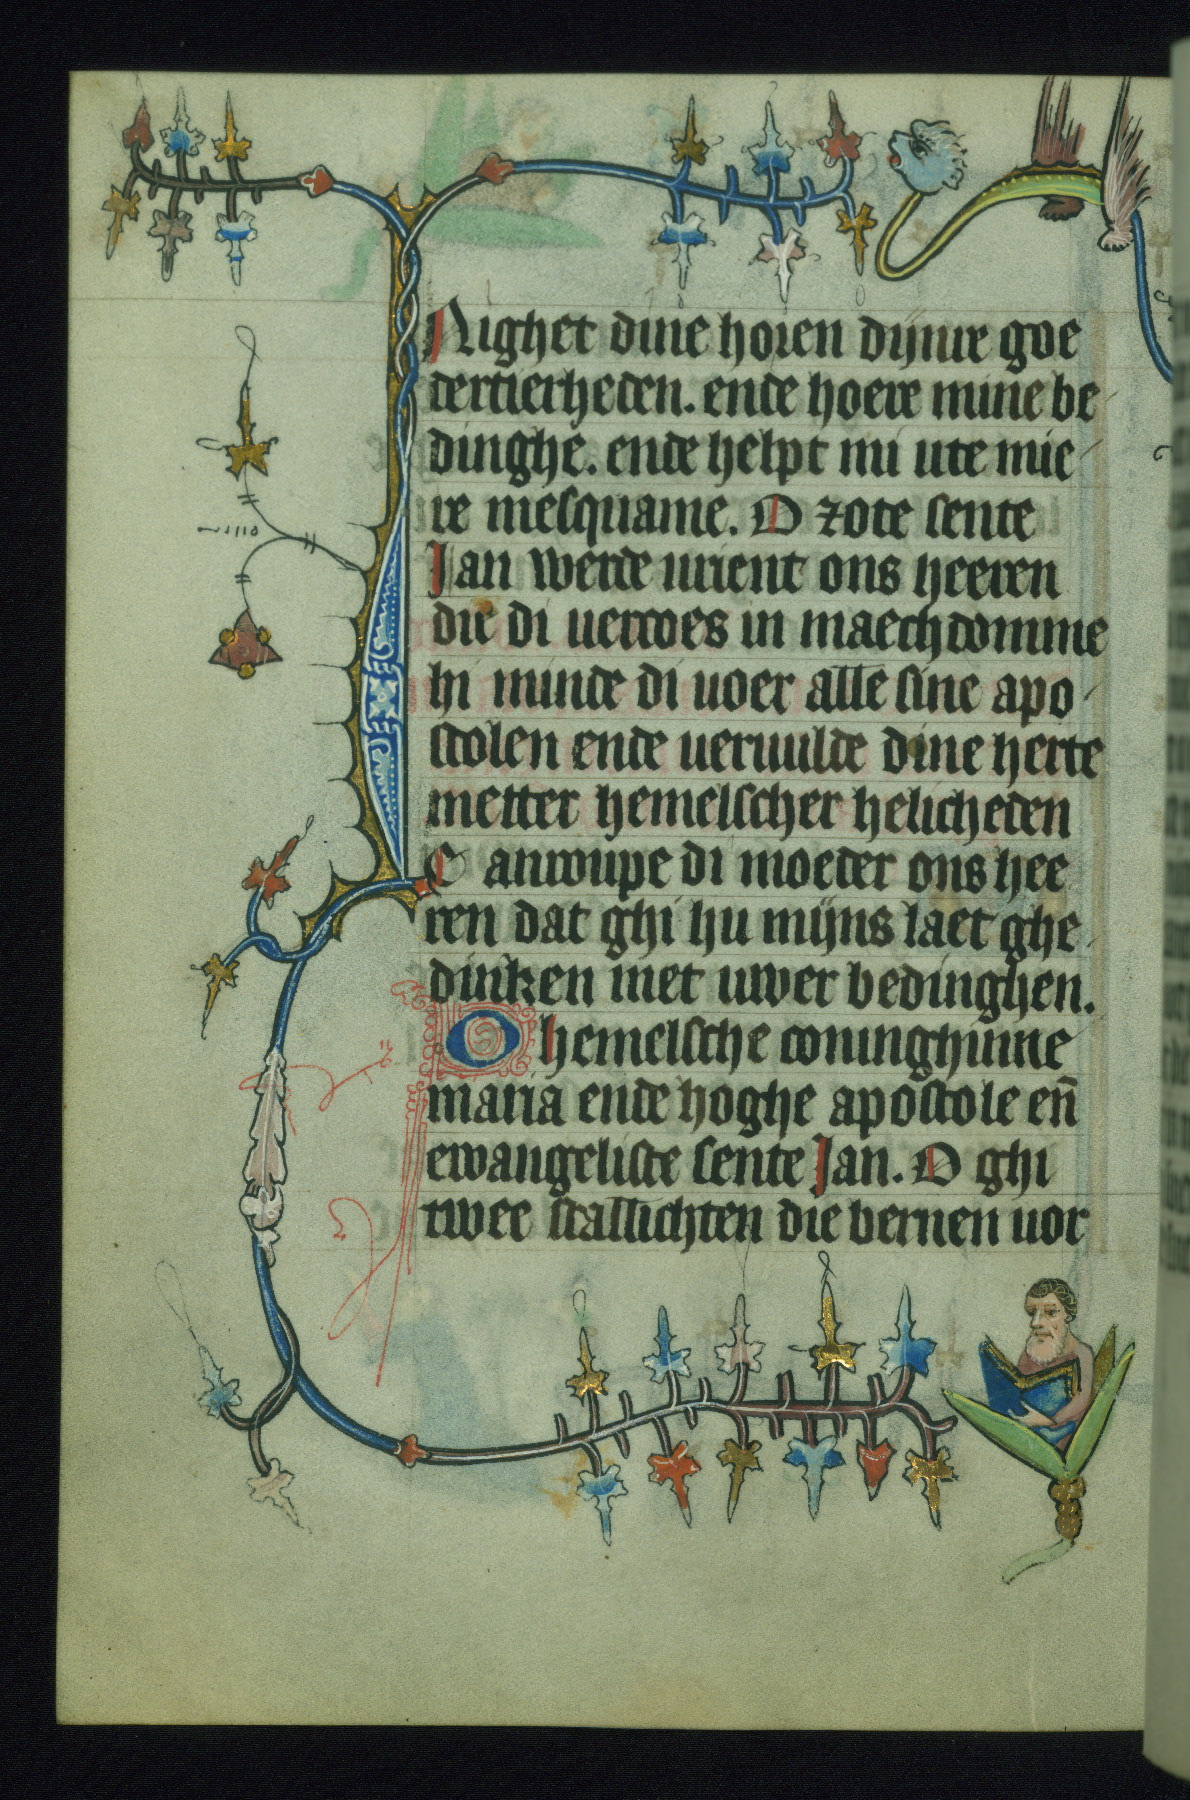 Nighet dine horen dijnre goe
dertierheden. ende hoere mine be
dinghe. ende helpt mi ute mie
re mesquame. O zote sente
Jan werde urient ons heeren
die di uercoes in maechdomme
hi minde di uoer alle sine apo
stolen ende ueruulde dine herte
metter hemelscher helicheden
Ic anroupe di moeder ons hee
ren dat ghi hu mijns laet ghe
dinken met uwer bedinghen.
O hemelsche coninghinne
maria ende hoghe apostole en̄
ewangeliste sente Jan. O ghi
twee stallichten die bernen uor